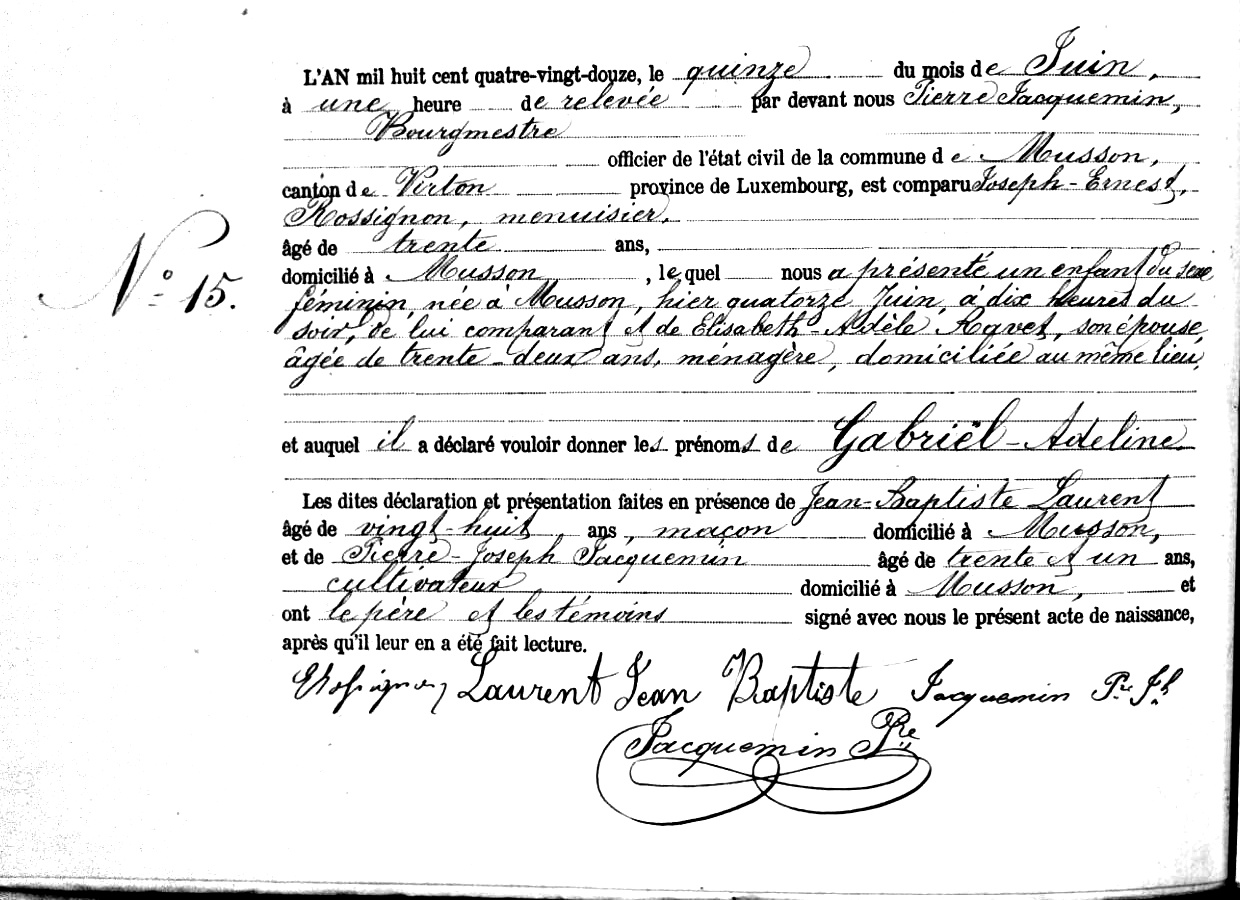 L'AN mil huit cent quatre-vingt-douze, le quinze du mois de Juin,
à une heure de relevée par devant nous Pierre Jacquemin,
Bourgmestre
officier de l'état civil de la commune de Musson,
canton de Virton province de Luxembourg, est comparu Joseph-Ernest,
Rossignon, menuisier,
âgé de trente ans,
domicilié à Musson, lequel nous a présenté un enfant du sexe
N° 15.
féminin, née à Musson, hier quatorze Juin, à dix heures du
soir, de lui comparant et de Elisabeth-Adèle son épouse,
âgée de trente-deux ans, ménagère, domiciliée au même lieu,
et auquel il a déclaré vouloir donner les prénoms de Gabriël-Adeline
Les dites déclaration et présentation faites en présence de Jean-Baptiste Laurent
âgé de vingt-huit ans, maçon domicilié à Musson,
et de Pierre-Joseph Jacquemin âgé de trente et un ans,
cultivateur domicilié à Musson, et
ont le père et les témoins signé avec nous le présent acte de naissance,
après qu'il leur en a été fait lecture.
ERossignon Laurent Jean Baptiste Jacquemin Pre Jh
Jacquemin Pre